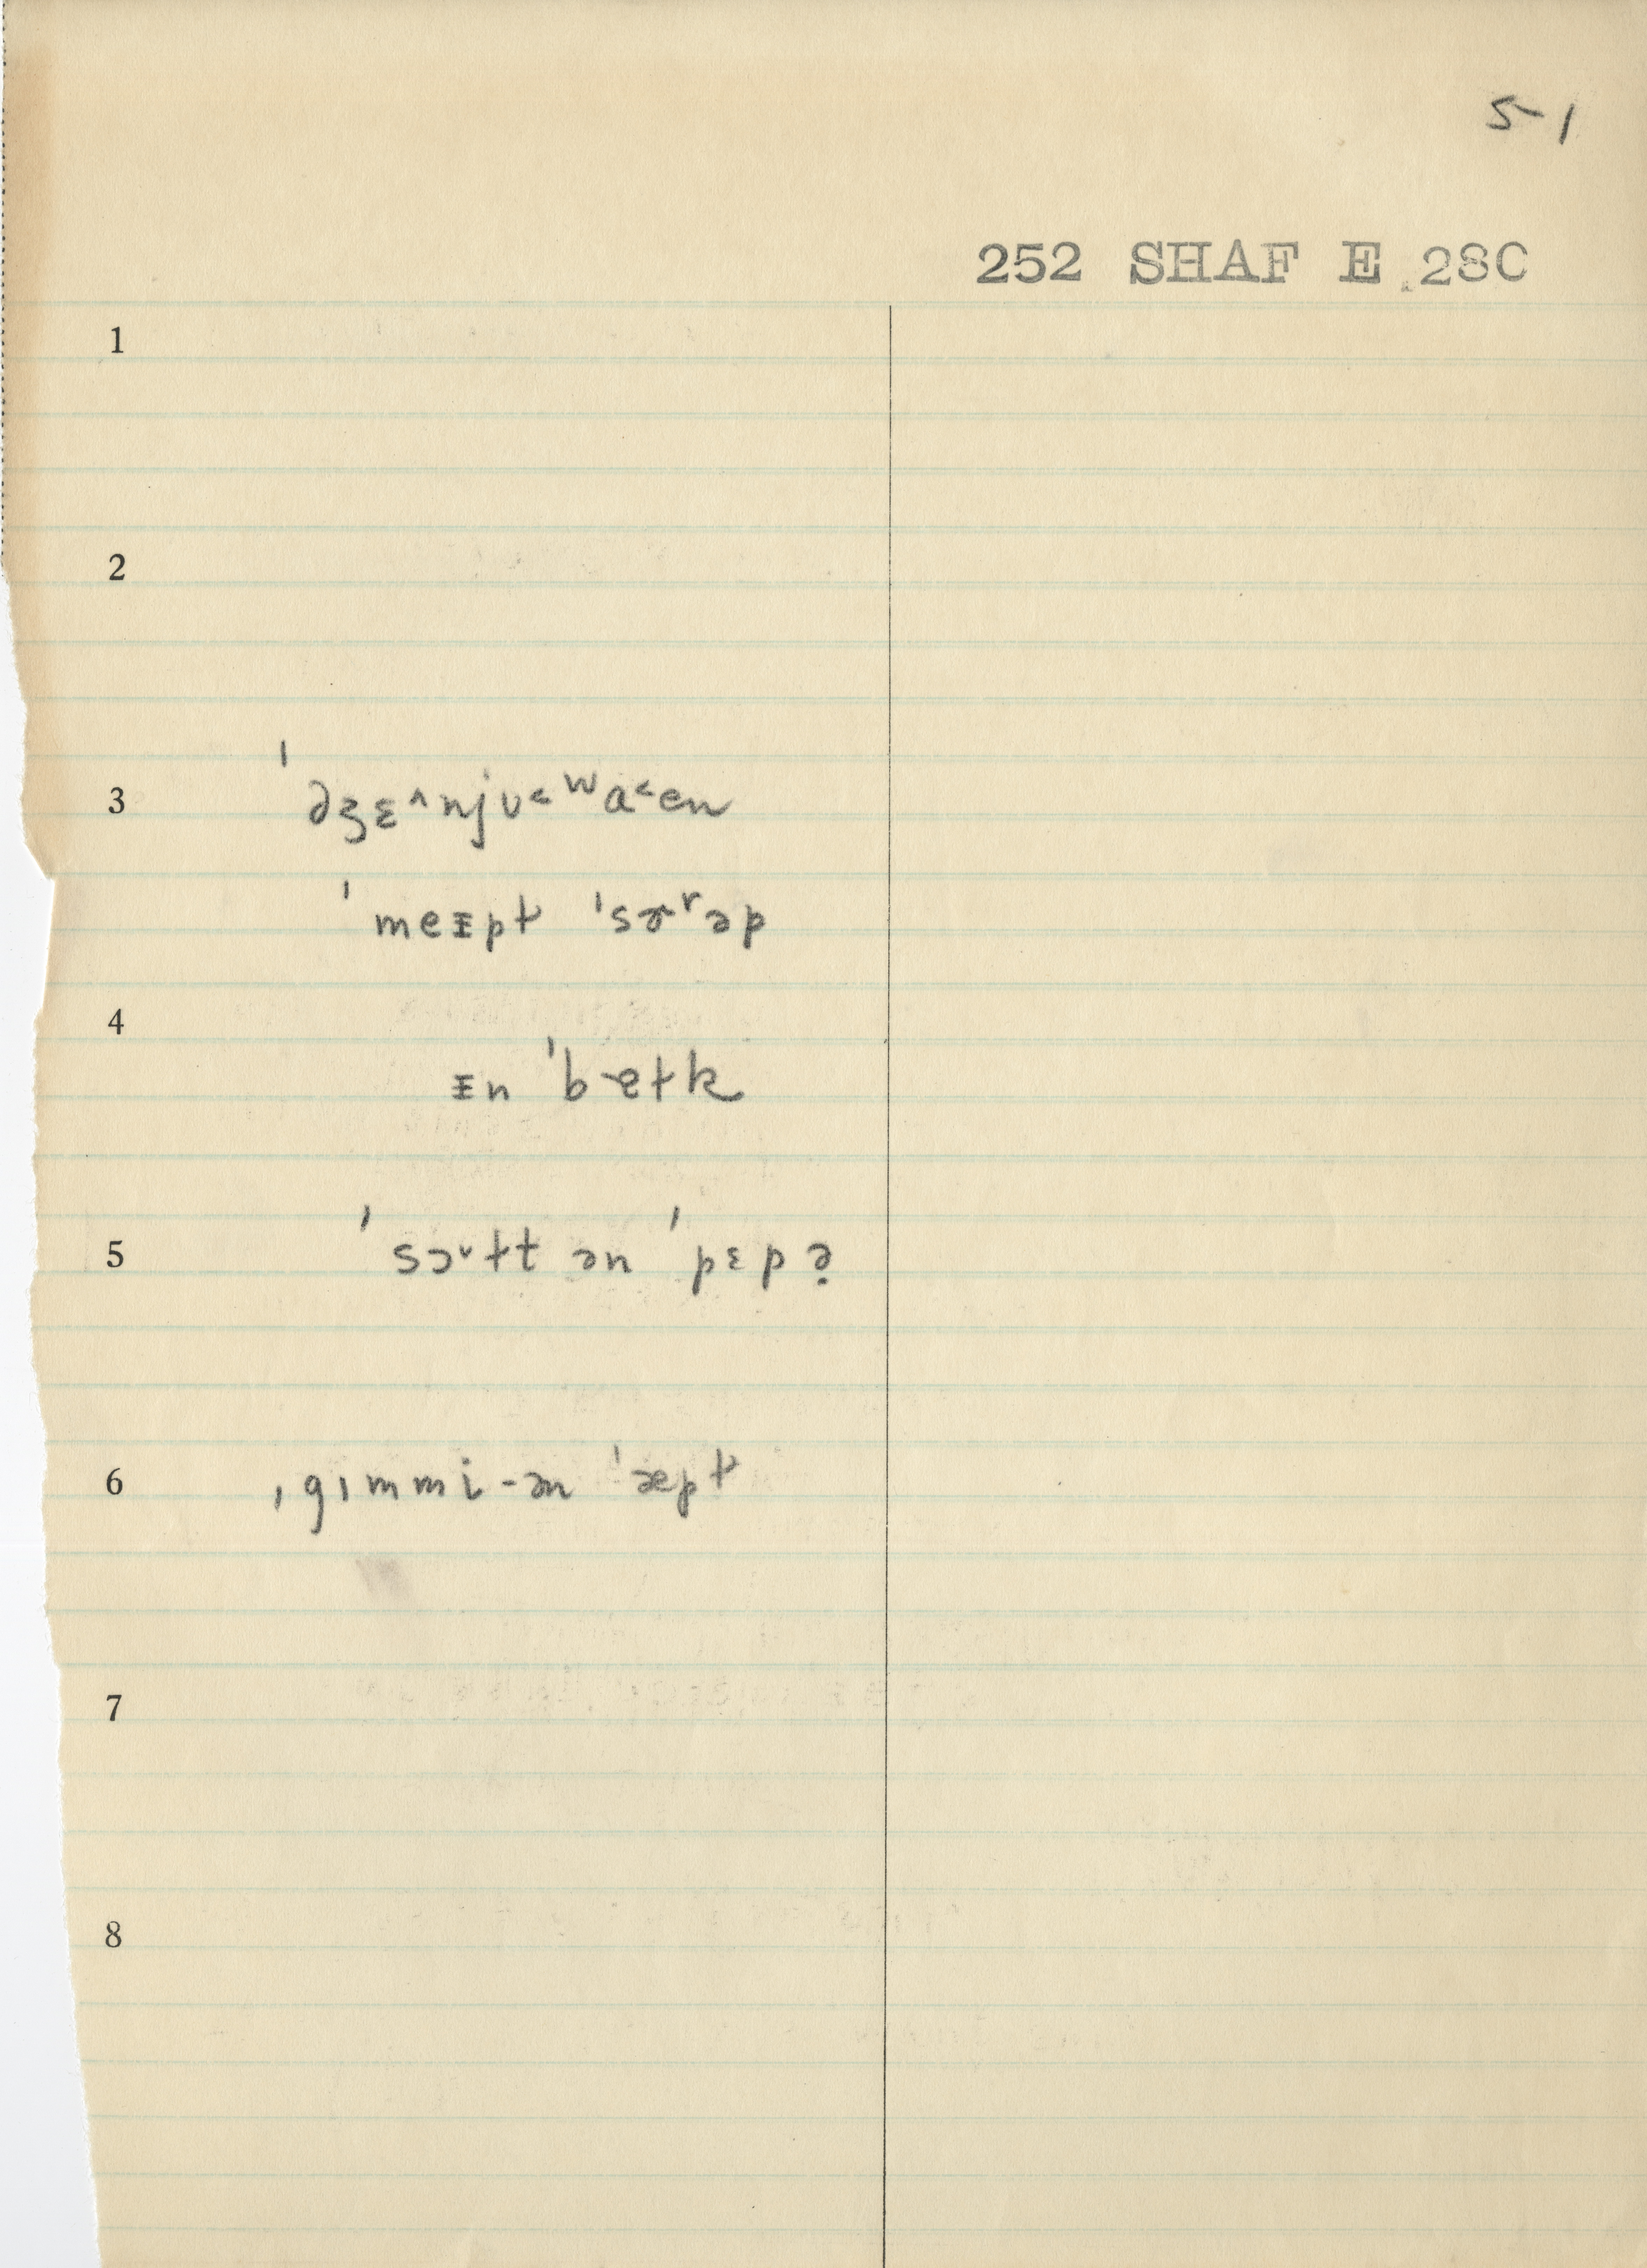 5-1
252 SHAF E 28C
1
2
3 ˈdʒɛ^njʊ˂ʷa˂en
ˈmeᵻpt ˈsɚʳəp
4
ᵻn ˈbɐtk
5 ˈsɔ˅ɫt ən ˈpɛpə̣
6 ˌgɪmmi-ən ˈæpɫ
7
8